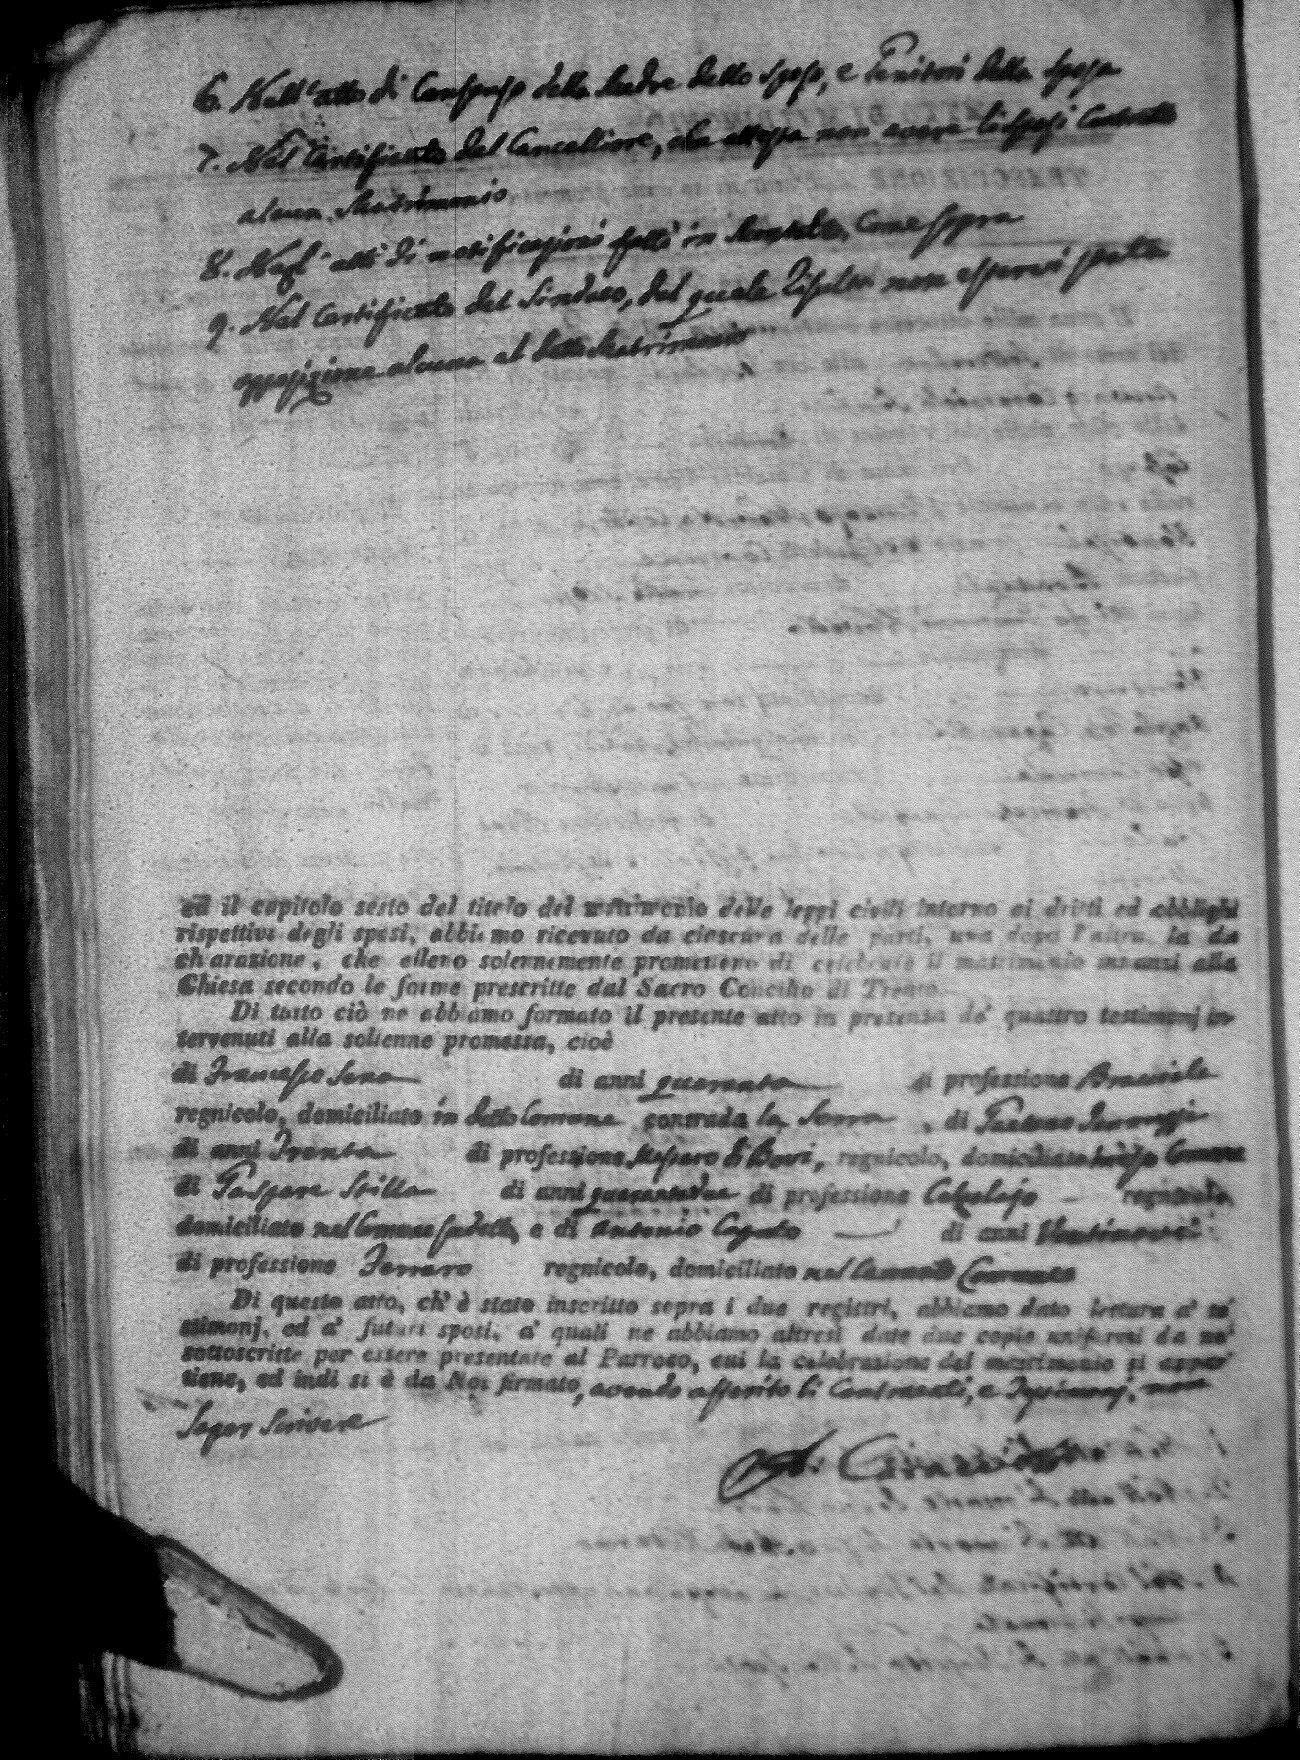 6. Nell'atto di Consenso della Madre dello Sposo, e Genitori della Sposa
7. Nel Certificato del Cancelliere, che attessa non avere li Sposi Contratto
alcun Matrimonio
8. Negl'atti di notificazioni fatti in Come Sopra
9. Nel Certificato del Sindaco, dal quale risulta non essersi fatta
opposizione alcuna al detto Matrimonio
ed il capitolo sesto del titolo del matrimonio delle leggi civili intorno ai dritti ed obblighi
rispettivi degli sposi, abbiamo ricevuto da ciascuna delle parti, una dopo l'altra, la di
chiarazione, che elleno solennemente promettono di celebrare il matrimonio innanzi alla
Chiesa secondo le forme prescritte dal Sacro Concilio di Trento.
Di tutto ciò ne abbiamo formato il presente atto in presenza de' quattro testimonj in-
tervenuti alla sollenne promessa, cioè
di Francesco Sena di anni quaranta di professione Bracciale
regnicolo, domiciliato in detto Comune contrada la Serra, di Gaetano
di anni Trenta di professione Massaro di Bovi, regnicolo, domiciliato Comune
di Gaspare Stilla di anni quarantadue di professione Calzolajo regnicolo,
domiciliato nel Comune sudetto, e di Antonio Caputo di anni Ventinove
di professione Ferraro regnicolo, domiciliato nel Comune
Di questo atto, ch' è stato inscritto sopra i due registri, abbiamo dato lettura a' te
stimonj, ed a' futuri sposi, a' quali ne abbiamo altresì date due copie uniformi da noi
sottoscritte per essere presentate al Parroco, cui la celebrazione del matrimonio si appar
tiene, ed indi si è da Noi firmato, avendo asserito li Contraenti, e Tesstimonj, non
Saper Scrivere